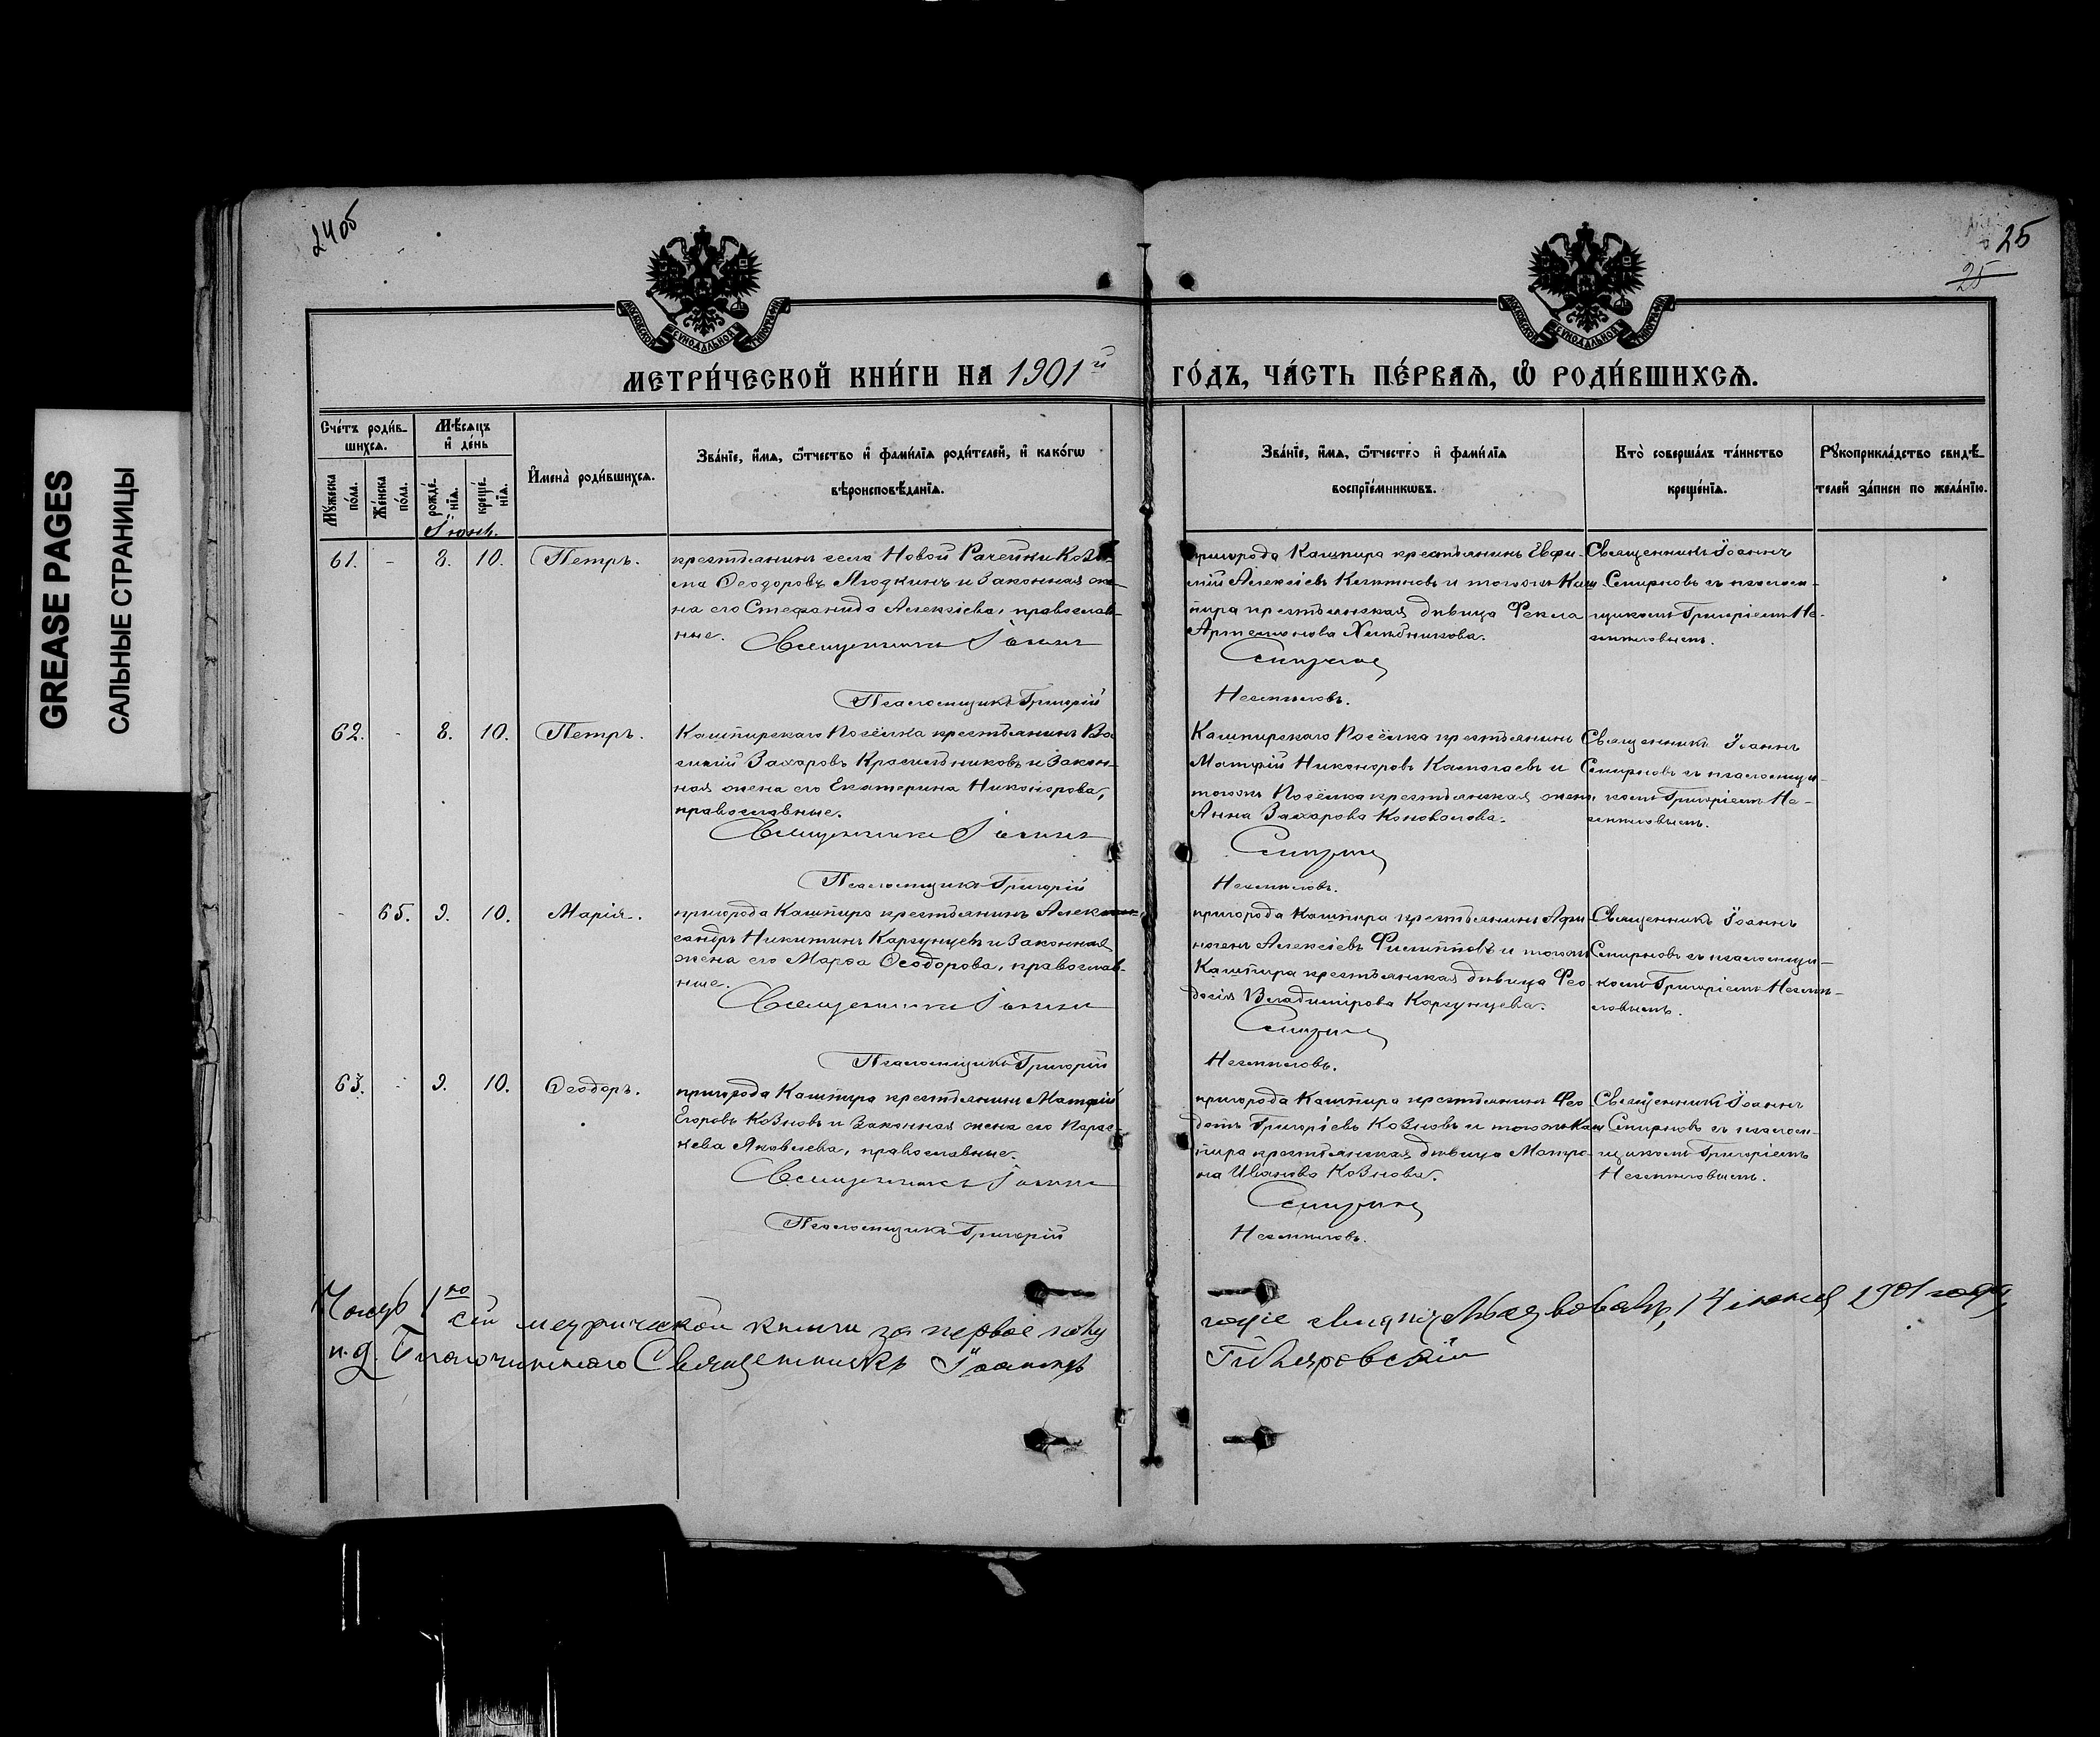 GREASE PAGES
САЛЬНЫЕ СТРАНИЦЫ
24об
25
25
МОСКОВСКОЙ СѴНОДАЛЬНОЙ ТИПОГРАФІИ
МОСКОВСКОЙ СѴНОДАЛЬНОЙ ТИПОГРАФІИ
МЕТРИ́ЧЕСКОЙ КНИ́ГИ НА 1901й ГО́ДЪ, ЧА́СТЬ ПЕ́РВАѦ, Ѡ҆ РОДИ́ВШИХСѦ.
Сче́тъ роди́в-
шихсѧ.
Мꙋ́жеска по́ла.
Же́нска по́ла.
Мѣ́сѧцъ
и҆ де́нь
рожде́-нїѧ.
креще́-нїѧ.
Имена̀ роди́вшихсѧ.
Зва́нїе, и҆́мѧ, ѻ҆́тчество и҆ фами́лїѧ роди́телей, и҆ како́гѡ
вѣроисповѣ́данїѧ.
Зва́нїе, и҆́мѧ, ѻ҆́тчество и҆ фами́лїѧ
воспрїе́мникѡвъ.
Кто̀ соверша́лъ та́инство
креще́нїѧ.
Рꙋкоприкла́дство свидѣ́-
телей за́писи по жела́нїю.
Іюнь.
61. - 8. 10. Петръ.
крестьянинъ села Новой Рачейки Козь-
ма Ѳеодоровъ Людкинъ и законная же-
на его Стефанида Алексіева, православ-
ные.
Священникъ Іоаннъ
Псаломщикъ Григорій
пригорода Кашпира крестьянинъ Евфи-
мій Алексіевъ и тогожъ Каш-
пира крестьянская дѣвица Фекла
Артемонова Хлѣбникова.
Смирновъ
Несмѣловъ.
Священникъ Іоаннъ
Смирновъ съ псалом-
щикомъ Григоріемъ Не-
смѣловымъ.
62. - 8. 10. Петръ.
Кашпирскаго Посёлка крестьянинъ Ва-
силій Захаровъ Красильниковъ и закон-
ная жена его Екатерина Никонорова,
православные.
Священникъ Іоаннъ
Псаломщикъ Григорій
Кашпирскаго Посёлка крестьянинъ
Матфій Никоноровъ и
тогожъ Посёлка крестьянская жена,
Анна Захарова Коновалова.
Смирновъ
Несмѣловъ.
Священникъ Іоаннъ
Смирновъ съ псаломщи-
комъ Григоріемъ Не-
смѣловымъ.
- 65. 9. 10. Марія.
пригорода Кашпира крестьянинъ Алек-
сандръ Никитинъ Каргунцевъ и законная
жена его Марѳа Ѳеодорова, православ-
ные.
Священникъ Іоаннъ
Псаломщикъ Григорій
пригорода Кашпира крестьянинъ Афи-
ногенъ Алексіевъ Филипповъ и тогожъ
Кашпира крестьянская дѣвица Фео-
досія Владимірова Каргунцева.
Смирновъ
Несмѣловъ.
Священникъ Іоаннъ
Смирновъ съ псаломщи-
комъ Григоріемъ Несмѣ-
ловымъ.
63. - 9. 10. Ѳеодоръ.
пригорода Кашпира крестьянинъ Матфій
Егоровъ Козновъ и законная жена его Парас-
кева Яковлева, православные.
Священникъ Іоаннъ
Псаломщикъ Григорій
пригорода Кашпира крестьянинъ Фео-
дотъ Григоріевъ Козновъ и тогожъ Каш-
пира крестьянская дѣвица Матро-
на Иванова Кознова.
Смирновъ
Несмѣловъ.
Священникъ Іоаннъ
Смирновъ съ псалом-
щикомъ Григоріемъ
Несмѣловымъ.
Часть 1ю сей метрической книги за первое полу годіе свидѣтельствовалъ, 14 іюня 1901 года,
и.д. Благочиннаго Священникъ Іоаннъ Гиляровскій